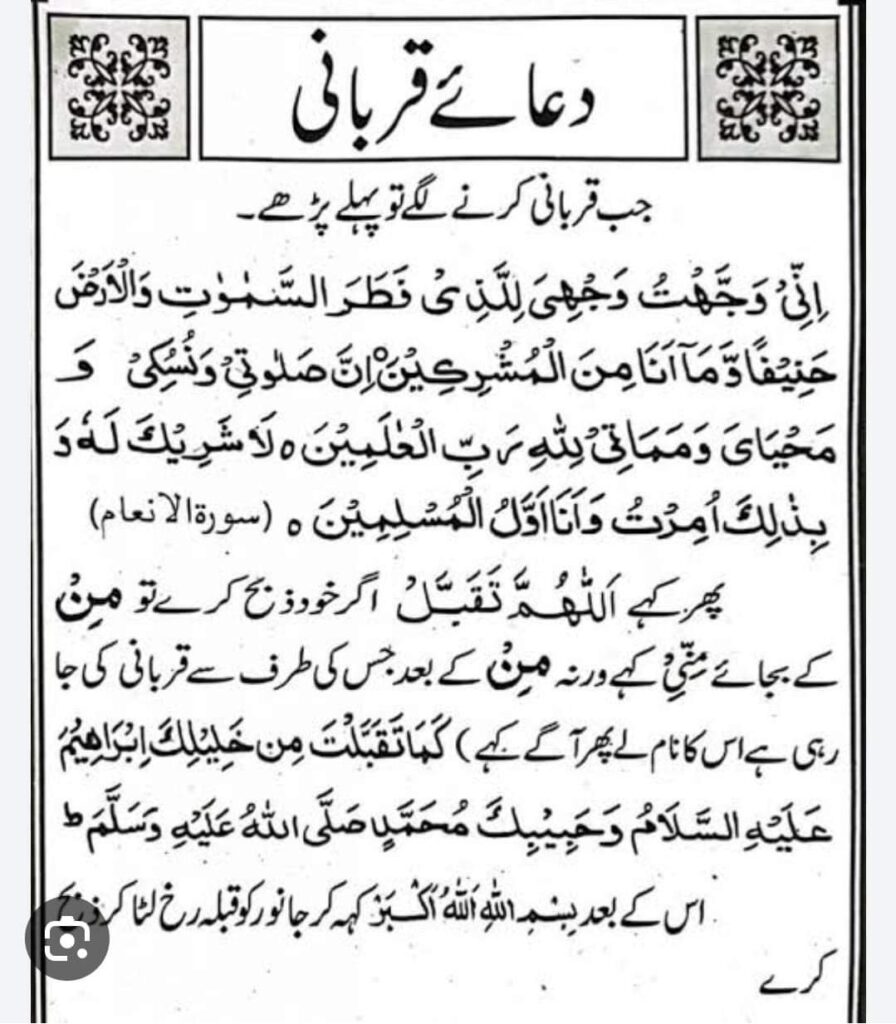 دعائے قربانی
جب قربانی کرنے لگے تو پہلے پڑھے۔
اِنِّیْ وَجَّهْتُ وَجْهِیَ لِلَّذِیْ فَطَرَ السَّمٰوٰتِ وَالْاَرْضَ
حَنِیْفًا وَّمَآ اَنَا مِنَ الْمُشْرِکِیْنَ ہ اِنَّ صَلٰوتِیْ وَنُسُکِیْ وَ
مَحْیَایَ وَمَمَاتِیْ لِلّٰهِ رَبِّ الْعٰلَمِیْنَ ہ لَا شَرِیْكَ لَهٗ وَ
بِذٰلِكَ اُمِرْتُ وَاَنَا اَوَّلُ الْمُسْلِمِیْنَ ہ (سورۃ الانعام)
پھر کہے اَللّٰهُمَّ تَقَبَّلْ اگر خود ذبح کرے تو مِنْ
کے بجائے مِنِّیْ کہے ورنہ مِنْ کے بعد جس کی طرف سے قربانی کی جا
رہی ہے اس کا نام لے پھر آگے کہے) كَمَا تَقَبَّلْتَ مِن خَلِیْلِكَ اِبْرَاهِیْمَ
عَلَیْهِ السَّلَامُ وَحَبِیْبِكَ مُحَمَّدٍ صَلَّی اللهُ عَلَیْهِ وَسَلَّمَ ط
اس کے بعد بِسْمِ اللهِ اَللهُ اَکْبَرْ کہہ کر جانور کو قبلہ رخ لٹا کر ذبح
کرے